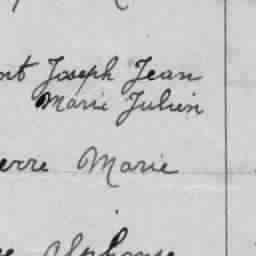 nt Joseph Jean
Marie Julien
erre Marie
Alphonse